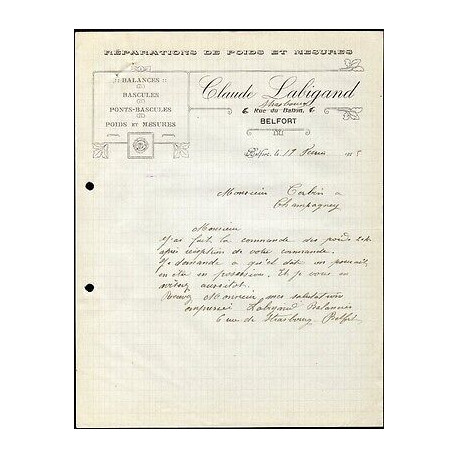 RÉPARATIONS DE POIDS ET MESURES
:: BALANCES ::
BASCULES
PONTS-BASCULES
POIDS ET MESURES
Claude Labigand
Strasbourg
6, Rue du Ballon, 6
BELFORT
Belfort, le 17
Monsieur Corbin a
Champagney
Monsieur
J'ai fait la commande des poids
après réception de votre commande.
Je demande a quel date on pouvait
en être en possession. Et je vous en
aussitot.
Recevez Monsieur mes salutations
Labigand Balancier
6 rue de Strasbourg Belfort